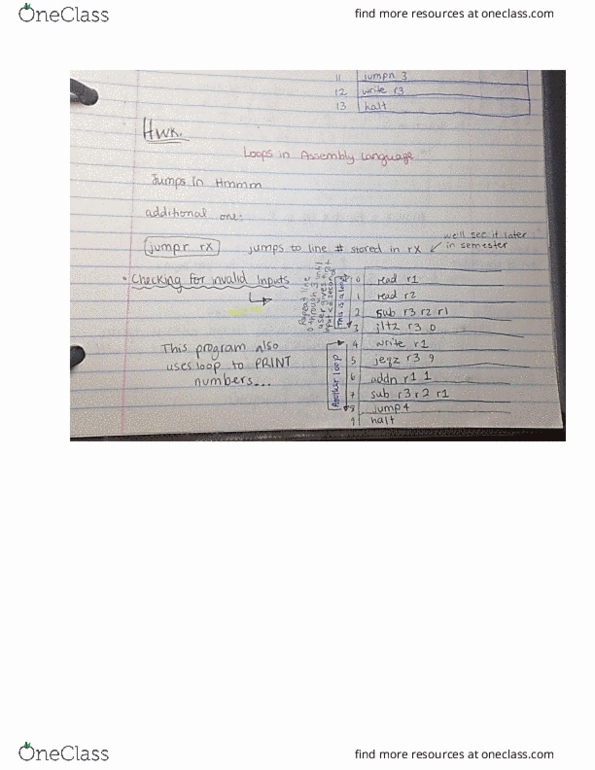 OneClass
find more resources at oneclass.com
11 jumpn 3
12 write r3
13 halt
Hwk.
Loops in Assembly Language
Jumps in Hmmm
additional one:
jumpr rX jumps to line # stored in rX
we'll see it later
in semester
• Checking for invalid inputs
Repeat line
0 through 3 until
user gives
This is a loop
0 read r1
1 read r2
2 sub r3 r2 r1
3 jltz r3 0
This program also
uses loop to PRINT
numbers...
Another loop
4 write r1
5 jeqz r3 9
6 addn r1 1
7 sub r3 r2 r1
8 jump 4
9 halt
OneClass
find more resources at oneclass.com